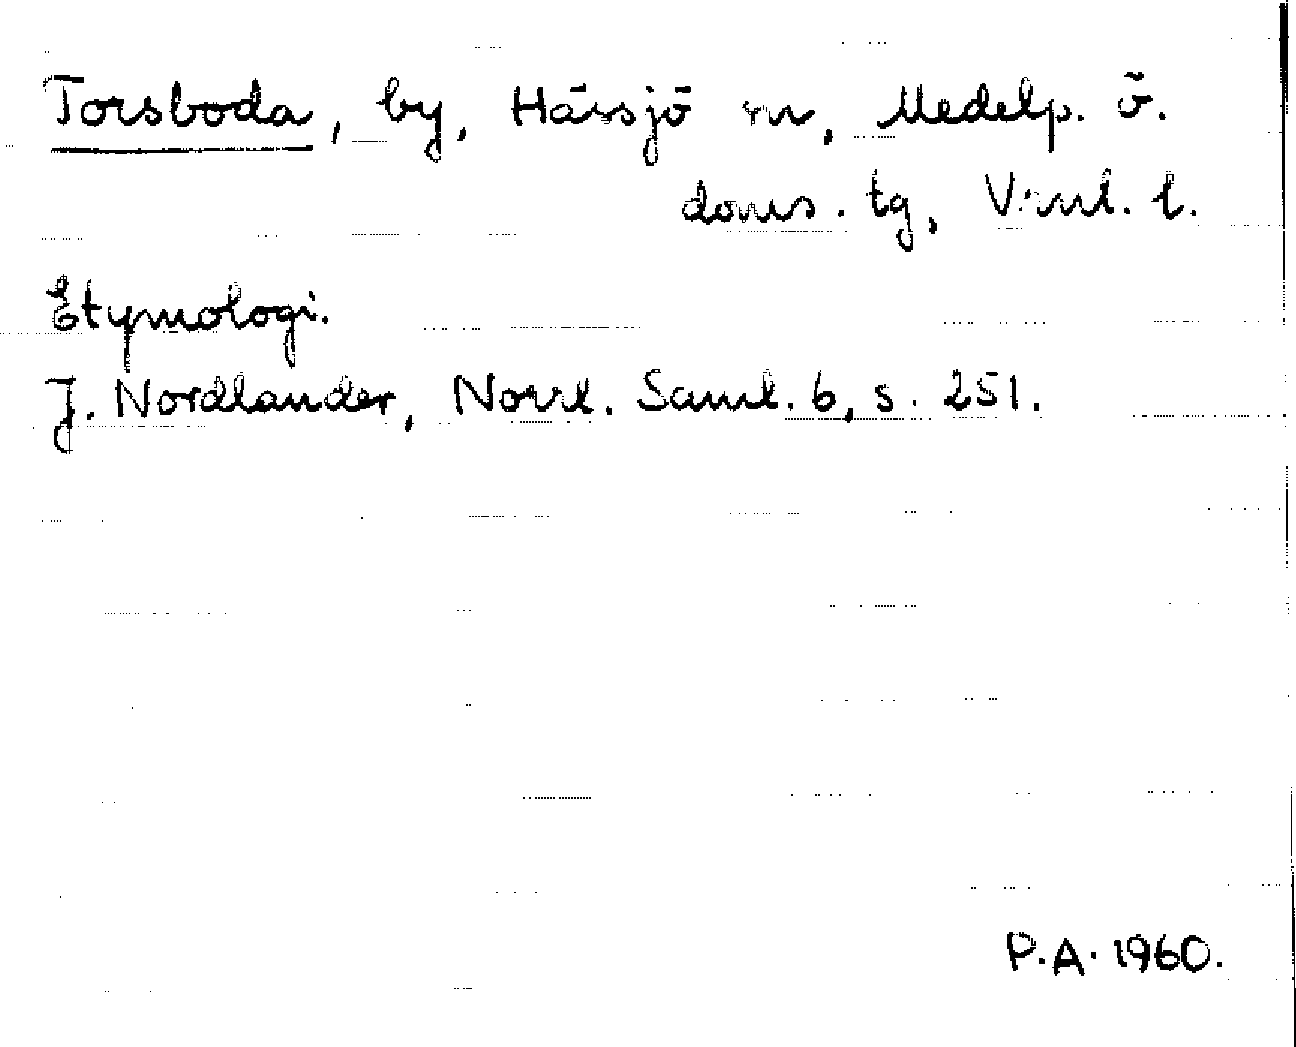 Torsboda, by, Hässjö sn, Medelp. ö.
doms. tg, V:nrl. l.
Etymologi.
J. Nordlander, Norrl. Saml. 6, s. 251.
P.A. 1960.